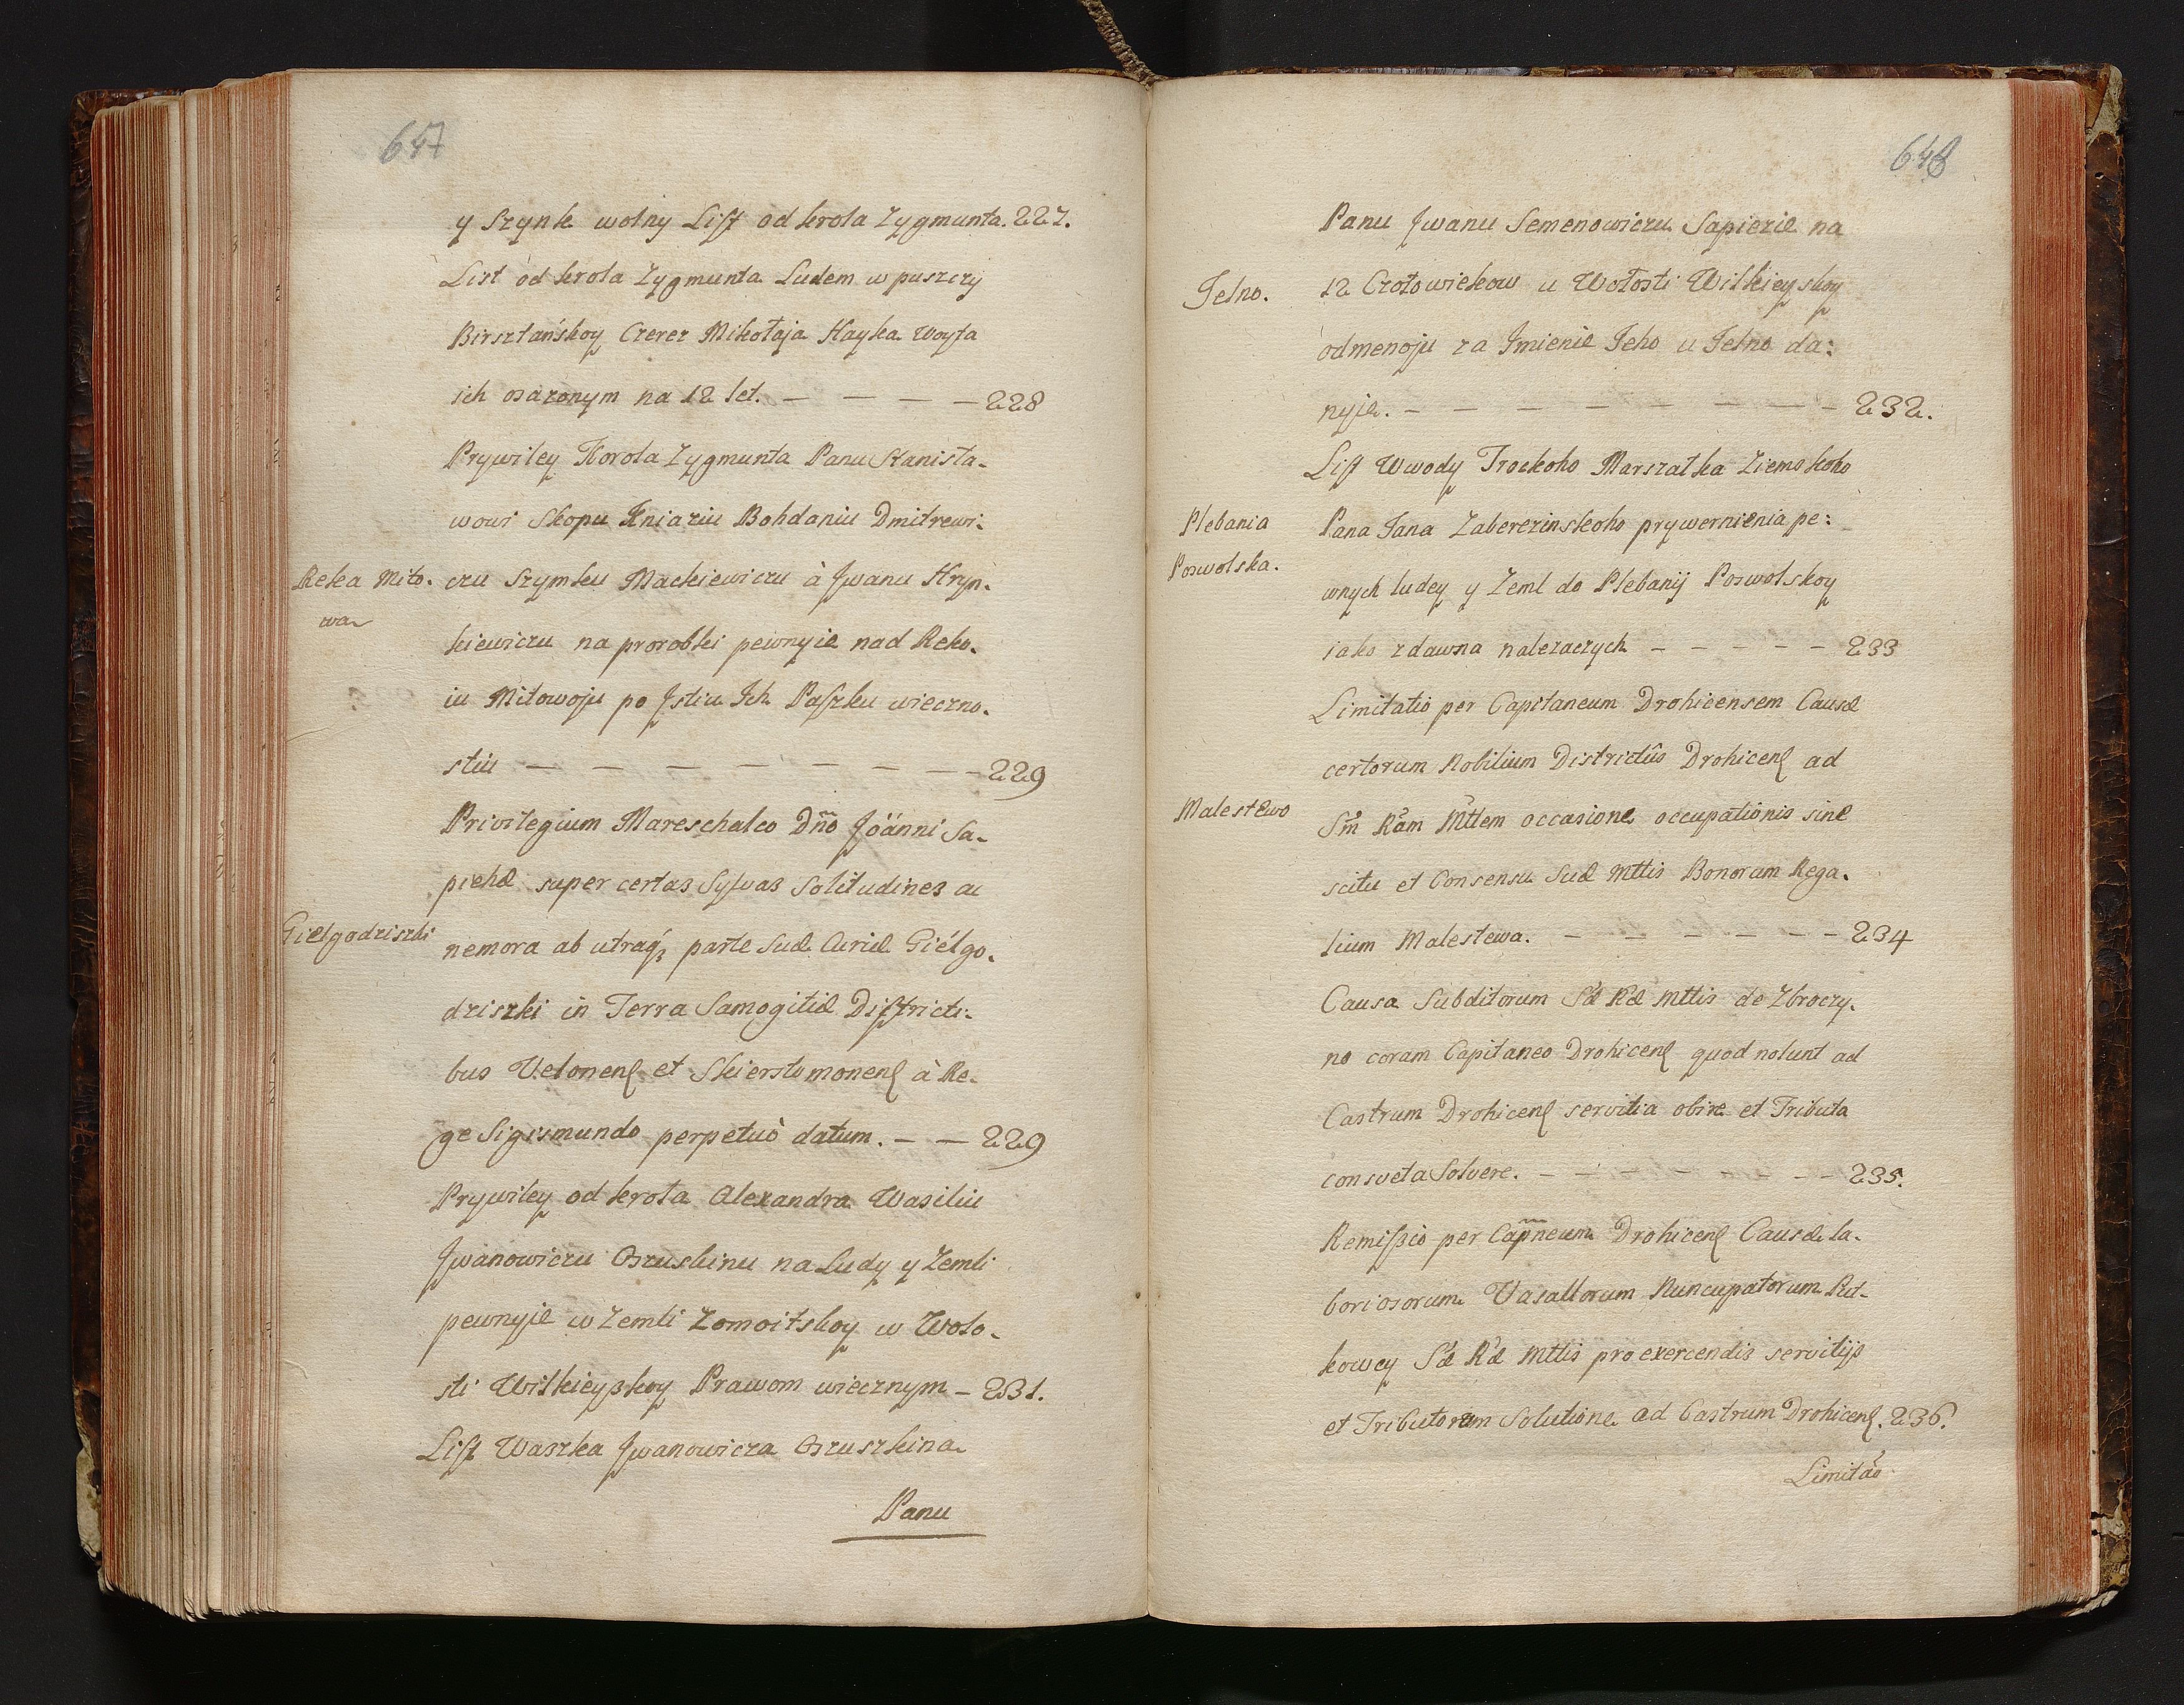 647
y Szynk wolny List od krola Zygmunta. 227.
List od krola Zygmunta Ludem w puszczy
Birsztańskoy Czerez Mikołaja Hayka Woyta
ich osazonym na 12 let. — — — — 228
Prywiley Korola Zygmunta Panu Stanisła-
wowi Skopu Kniaziu Bohdaniu Dmitrewi-
Reka Miło- czu Szymku Mackiewiczu à Jwanu Hryn-
wa
kiewiczu na prorobki pewnyie nad Reko-
iu Miłowoju po Jstiu Ich Paszku wieczno-
stiu — — — — — — — — 229
Privilegium Mareschalco Dño Joänni Sa-
piehæ super certas Sylvas Solitudines ac
Gielgodziszki nemora ab utraq3 parte Suæ Curiæ Giélgo-
dziszki in Terra Samogitiæ Districti-
bus Velonens et Skierstomonens à Re-
ge Sigismundo perpetuò datum. — — 229
Prywiley od krola Alexandra Wasiliu
Jwanowiczu Oszuskinu na Ludy y Zemli
pewnyje w Zemli Zomoitskoy w Woło-
sti Wilkieyskoy Prawom wiecznym — 231.
List Waszka Jwanowicza Oszuszkina
Panu
648
Panu Jwanu Semenowiczu Sapiezie na
Jelno. 12 Czołowiekow u Wołosti Wilkieyskoy
odmenoju za Jmienie Jeho u Jelno da:
nyje. — — — — — — — — 232.
List Wwody Trockoho Marszałka Ziemskoho
Plebania Pana Jana Zaberezinskoho prywernienia pe:
Poswolska.
wnych ludey y Zeml do Plebanij Poswolskoy
iako zdawna nalezaczych — — — — — 233
Limitatio per Capitaneum Drohicensem Causæ
certorum Nobilium Districtûs Drohicens ad
Malestewo Sm̃ Rãm Mttem occasione occupationis sine
scitu et Consensu Suæ Mttis Bonorum Rega-
lium Malestewa. — — — — — — 234
Causa Subditorum Sæ Ræ Mttis de Zbroczy-
no coram Capitaneo Drohicens quod nolunt ad
Castrum Drohicens servitia obire et Tributa
consveta Solvere. — — — — — — — 235.
Remissio per Capñeum Drohicens Causæ la-
boriosorum Vasallorum Nuncupatorum Put-
kowcy Sæ Ræ Mttis pro exercendis servitijs
et Tributorum Solutione ad Castrum Drohicens. 236.
Limitão